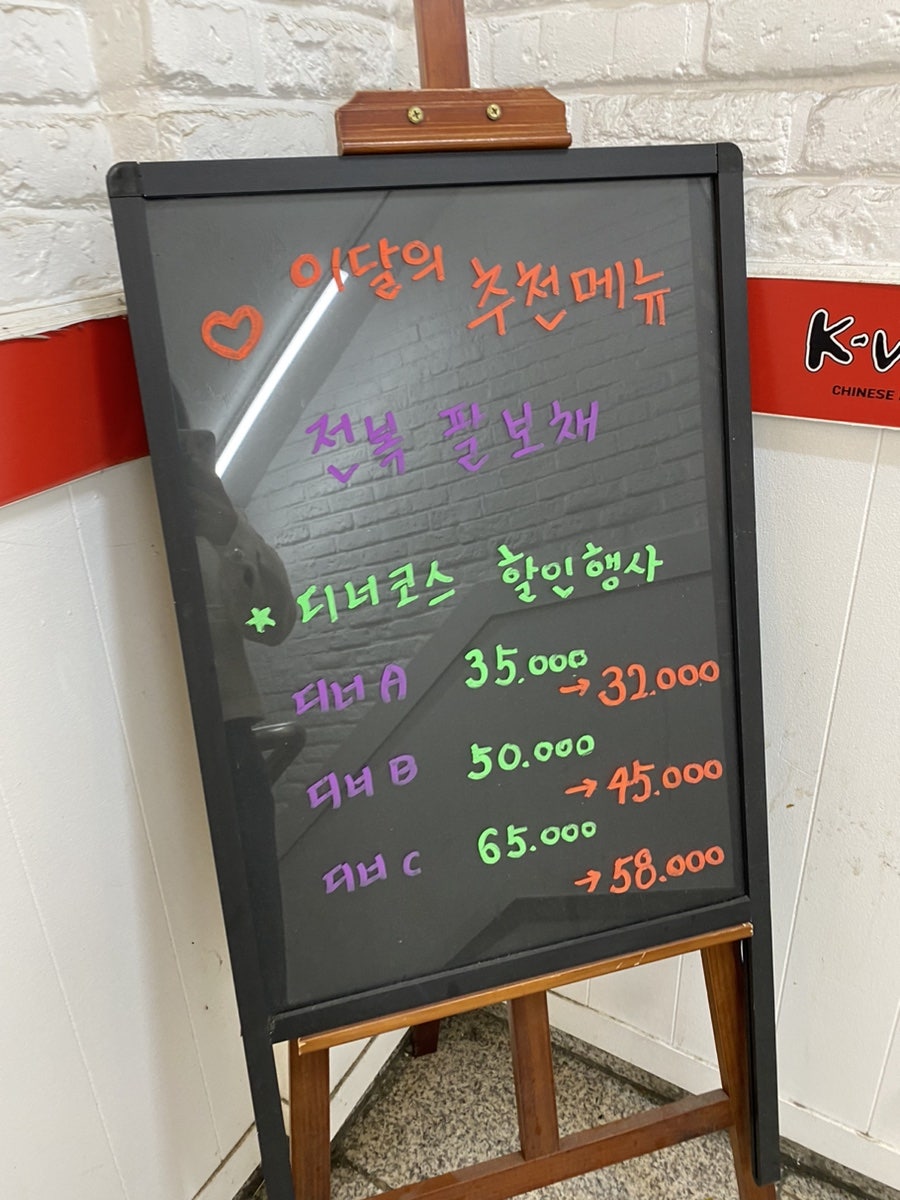 이달의 추천메뉴
전복 팔보채
디너코스 할인행사
디너 A 35.000
→ 32.000
디너 B 50.000
→ 45.000
디너 C 65.000
→ 58.000
CHINESE